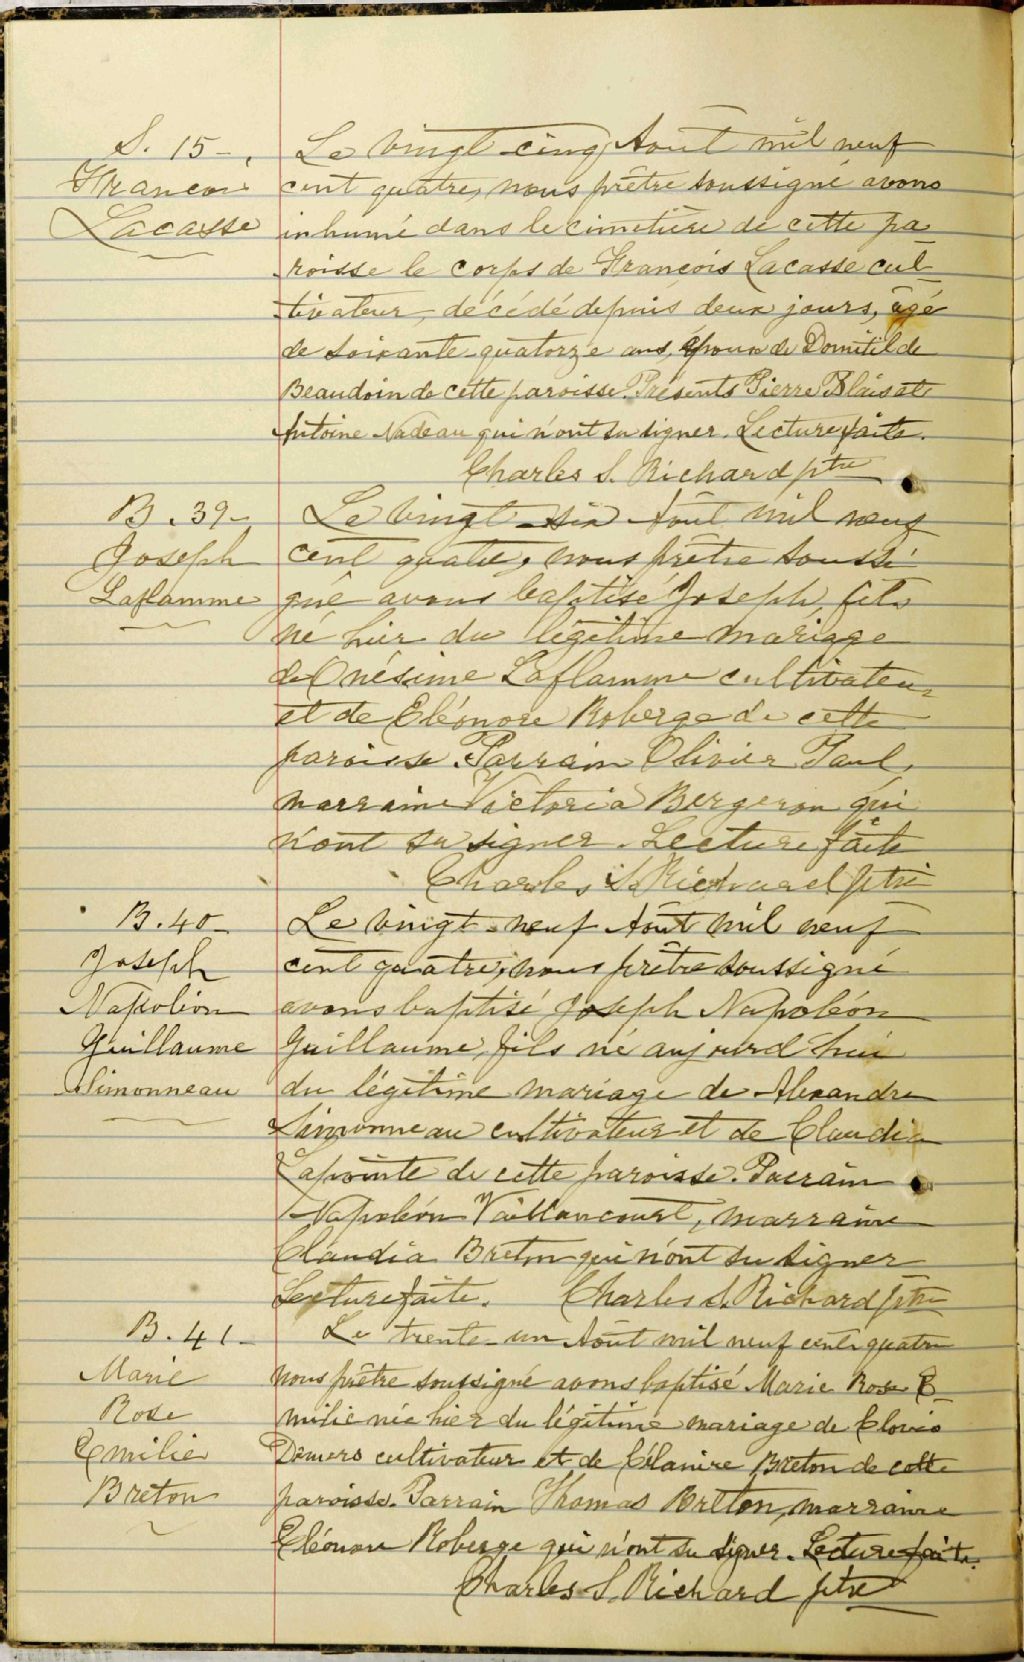 S. 15 -
François
Lacasse
Le vingt-cinq Août mil neuf
cent quatre, nous prêtre soussigné avons
inhumé dans le cimetière de cette pa
roisse le corps de François Lacasse cul
tivateur, décédé depuis deux jours, âgé
de soixante-quatorze ans, époux de Domitilde
Beaudoin de cette paroisse. Présents Pierre Blais et
Antoine Nadeau qui n'ont su signer. Lecture faite.
Charles S. Richard ptre
B. 39 -
Joseph
Laflamme
Le vingt-six Août mil neuf
cent quatre, nous prêtre soussi
gné avons baptisé Joseph, fils
né hier du légitime mariage
de Onésime Laflamme cultivateur
et de Eléonore Roberge de cette
paroisse. Parrain Olivier Paul,
marraine Victoria Bergeron qui
n'ont su signer. Lecture faite
Charles S. Richard ptre
B. 40 -
Joseph
Napoléon
Guillaume
Simonneau
Le vingt-neuf Août mil neuf
cent quatre, nous prêtre soussigné
avons baptisé Joseph Napoléon
Guillaume, fils né aujourd'hui
du légitime mariage de Alexandre
Simonneau cultivateur et de Claudia
Lapointe de cette paroisse. Parrain
Napoléon Vaillancourt, marraine
Claudia Breton qui n'ont su signer
Lecture faite. Charles S. Richard ptre
B. 41 -
Marie
Rose
Emilie
Breton
Le trente-un Août mil neuf cent quatre
nous prêtre soussigné avons baptisé Marie Rose E
milie née hier du légitime mariage de Clovis
Demers cultivateur et de Célanire Breton de cette
paroisse. Parrain Thomas Breton, marraine
Eléonore Roberge qui n'ont su signer. Lecture faite.
Charles S. Richard ptre